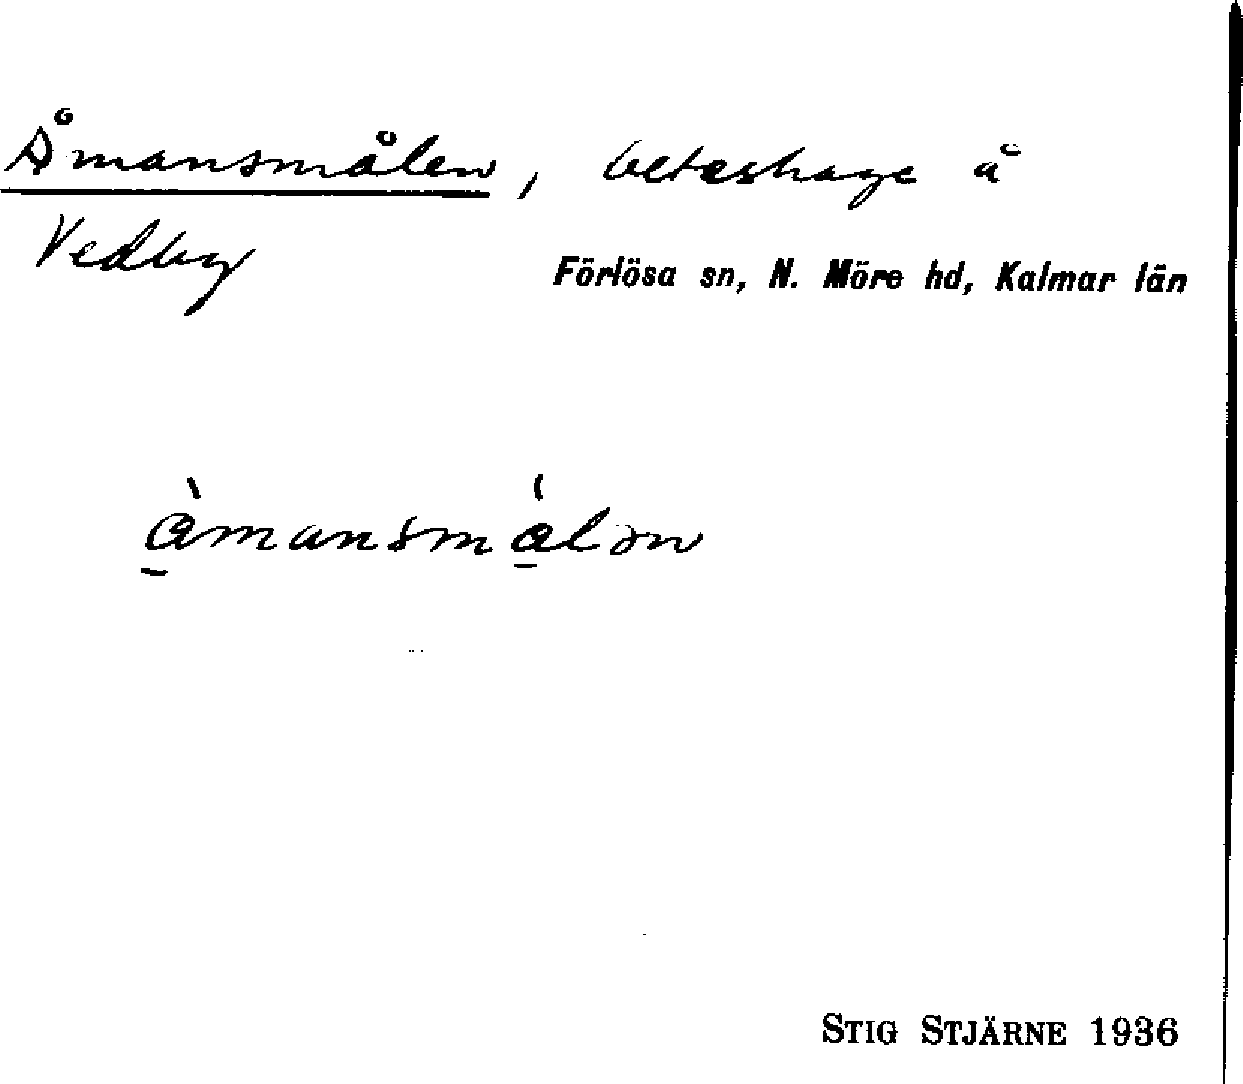 Åmansmålen, beteshage å
Vedby
Förlösa sn, N. Möre hd, Kalmar län
åmansmålən
STIG STJÄRNE 1936